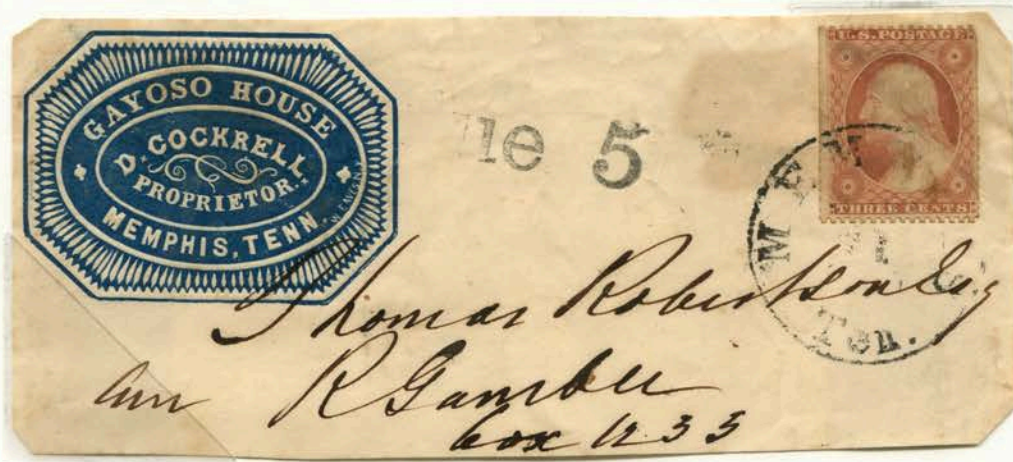 GAYOSO HOUSE
D. COCKRELL
PROPRIETOR.
MEMPHIS, TENN
ue 5
U.S. POSTAGE
THREE CENTS
MEM
Ten.
Thomas Robertson Esq
R Gamble
box 1233